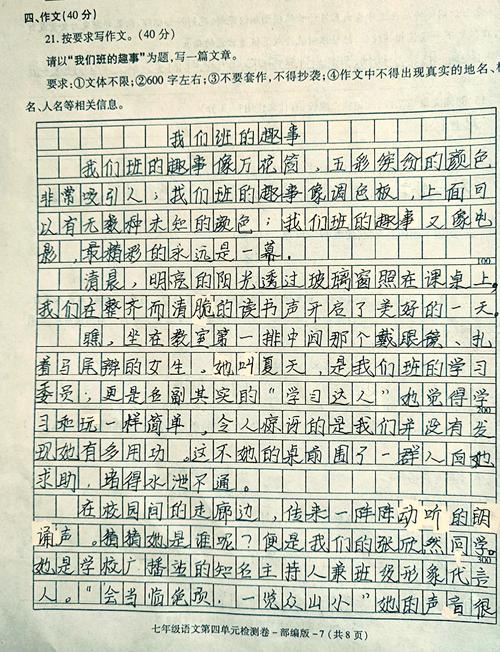 四、作文(40分)
21.按要求写作文。(40分)
请以“我们班的趣事”为题,写一篇文章。
要求:①文体不限;②600字左右;③不要套作,不得抄袭;④作文中不得出现真实的地名、校
名、人名等相关信息。
我们班的趣事
我们班的趣事像万花筒,五彩缤纷的颜色
非常吸引人;我们班的趣事像调色板,上面可
以有无数种未知的颜色;我们班的趣事又像电
影,最精彩的永远是下一幕。
100
清晨,明亮的阳光透过玻璃窗照在课桌上,
我们在整齐而清脆的读书声开启了美好的一天。
瞧,坐在教室第一排中间那个戴眼镜、扎
着马尾辫的女生。她叫夏天,是我们班的学习
委员;更是名副其实的“学习达人”她觉得学
200
习和玩一样简单,令人惊讶的是我们并没有发
现她有多用功。这不她的桌前围了一群人向她
求助,堵得水泄不通。
在校园间的走廊边,传来一阵阵动听的朗
诵声。猜猜她是谁呢?便是我们的张欣然同学。
300
她是学校广播站的知名主持人兼班级形象代言
人。“会当临绝顶,一览众山小”她的声音很
七年级语文第四单元检测卷-部编版-7(共8页)